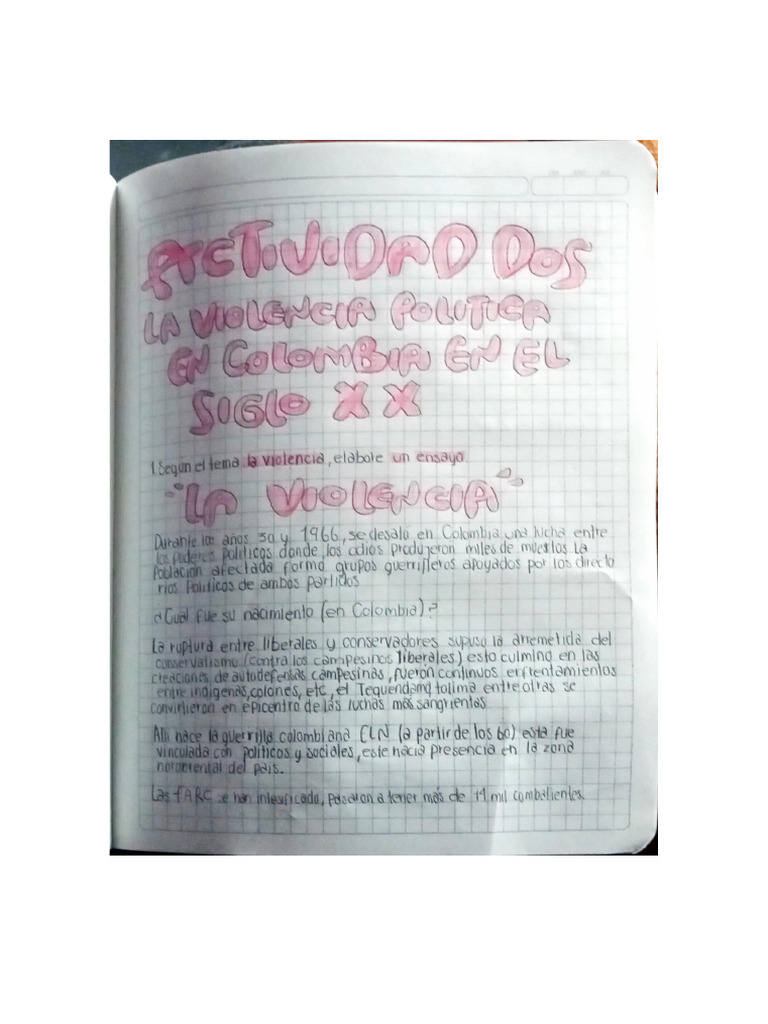 ACTIVIDAD DOS
LA VIOLENCIA POLITICA
EN COLOMBIA EN EL
SIGLO XX
1. Según el tema la violencia, elabole un ensayo
"LA VIOLENCIA"
Durante los años 30 y 1966, se desato en Colombia una lucha entre
los poderes politicos donde, los odios produjeron miles de muertos. La
Población afectada formo grupos guerrilleros apoyados por los directo
rios Politicos de ambos partidos
¿Cual fue su nacimiento (en Colombia)?
La ruptura entre liberales y conservadores supuso la arremetida del
conservatismo (contra los campesinos liberales) esto culmino en las
creaciones de autodefensas campesinas, fueron continuos enfrentamientos
entre indigenas, colones, etc, el Tequendama tolima entre otras se
convirtieron en epicentro de las luchas más sangrientas
Alli nace la guerrilla colombiana ELN (a partir de los 60) esta fue
vinculada con politicos y sociales, este hacia presencia en la zona
nororiental del pais.
Las FARC se han intesificado, pasaron a tener más de 11 mil combatientes.